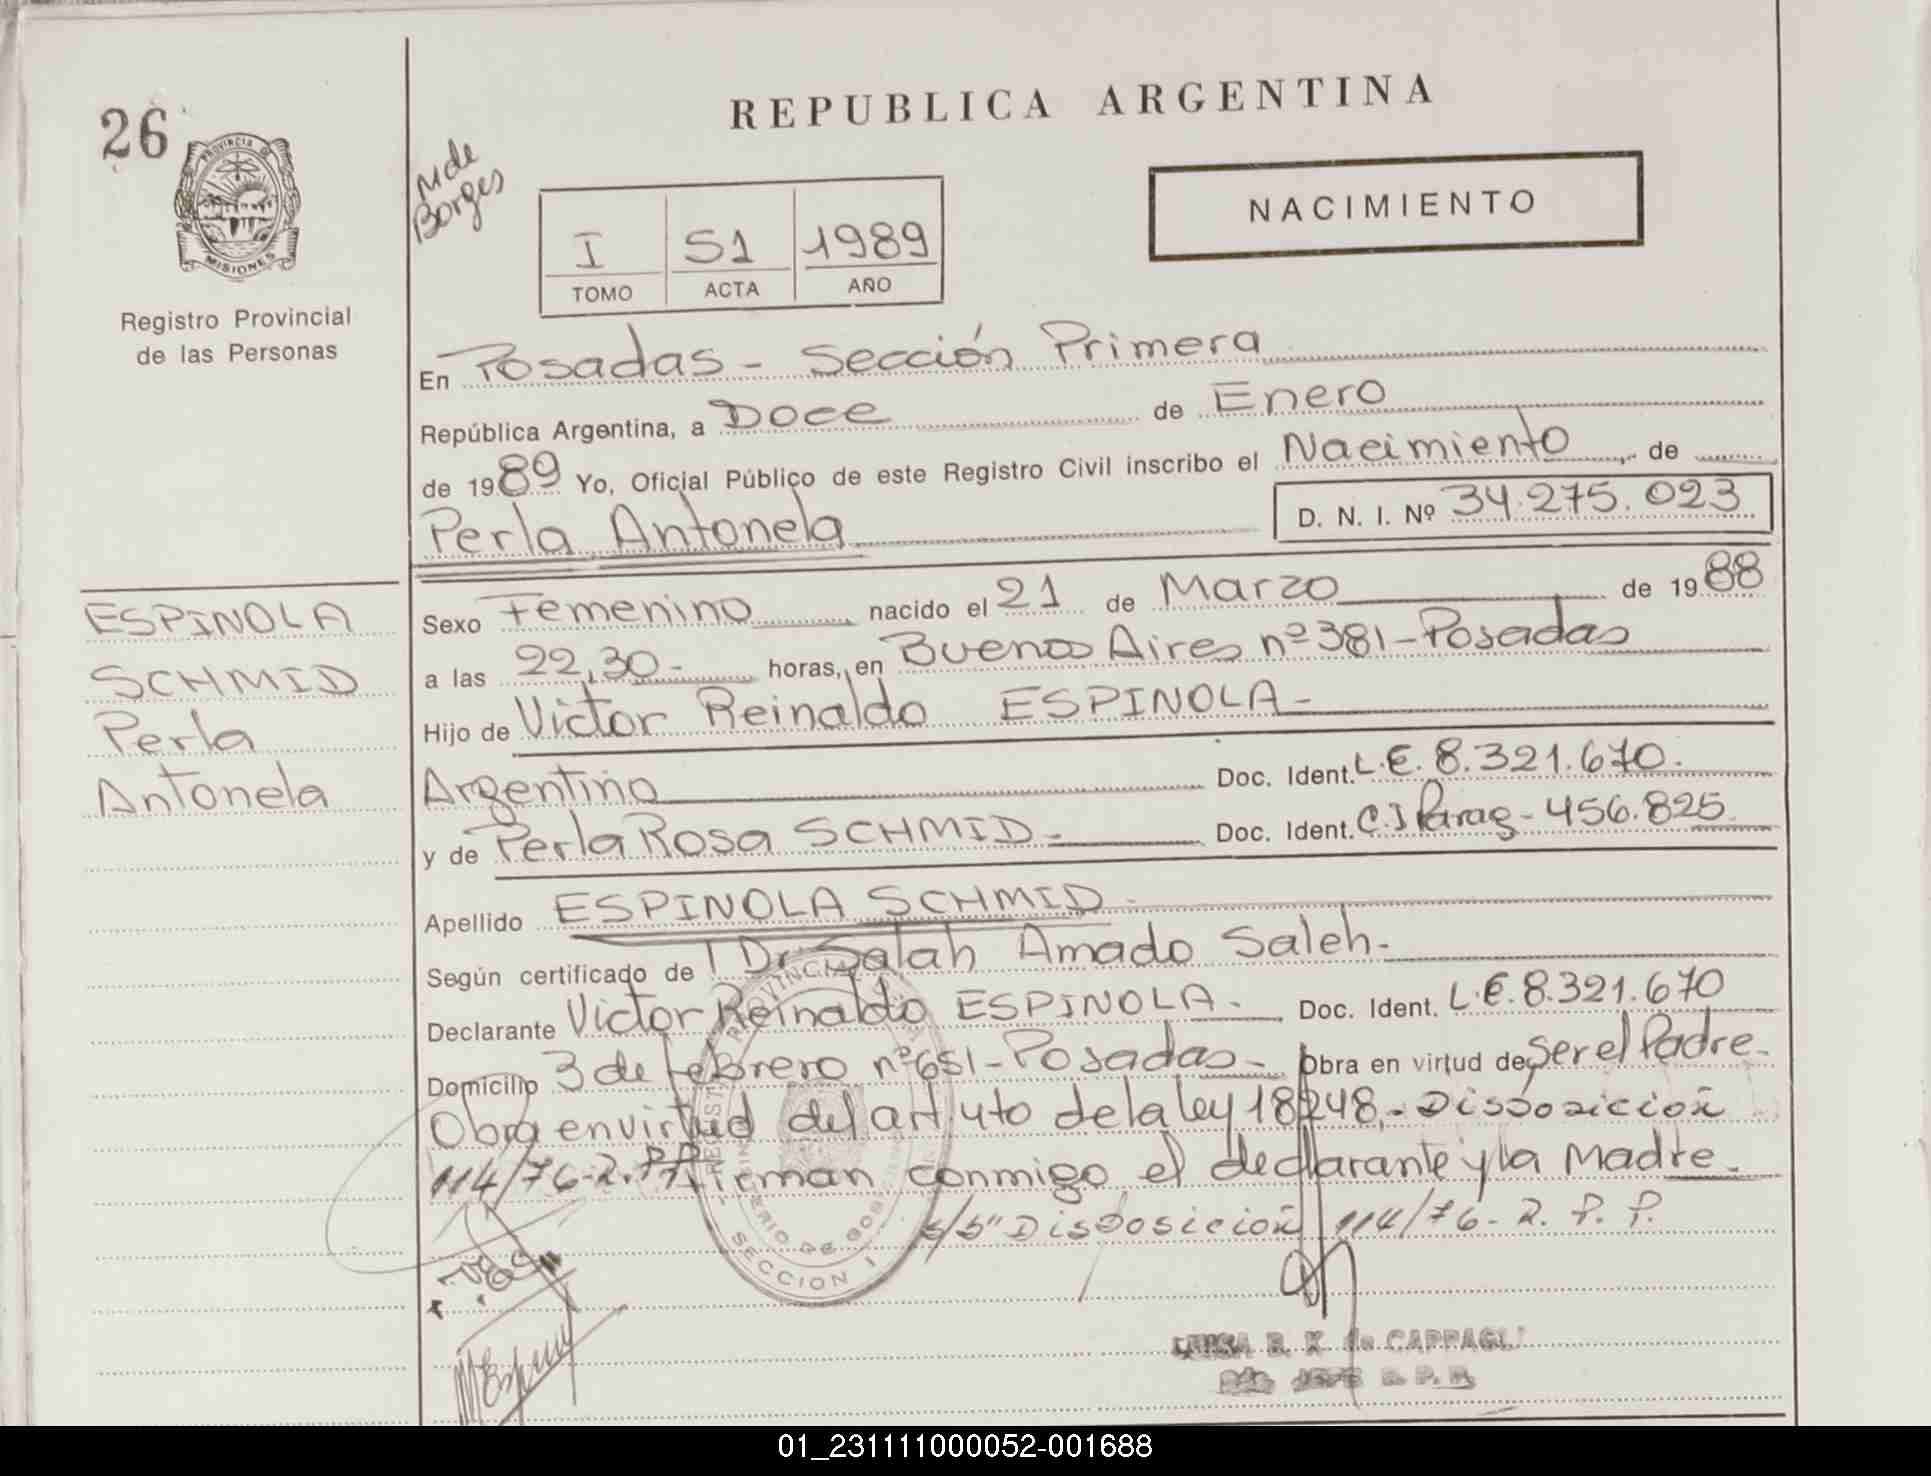 26
PROVINCIA DE
MISIONES
Registro Provincial
de las Personas
ESPINOLA
SCHMID
Perla
Antonela
REPUBLICA ARGENTINA
M de
Borges
I 51 1989
TOMO ACTA AÑO
NACIMIENTO
En Posadas - Sección Primera
República Argentina, a Doce de Enero
de 1989 Yo, Oficial Público de este Registro Civil inscribo el Nacimiento de
Perla Antonela D. N. I. Nº 34.275.023
Sexo Femenino nacido el 21 de Marzo de 1988
a las 22,30- horas, en Buenos Aires nº 381 - Posadas
Hijo de Victor Reinaldo ESPINOLA -
Argentino Doc. Ident. L.E. 8.321.670.
y de Perla Rosa SCHMID - Doc. Ident. C.I Parag - 456.825
Apellido ESPINOLA SCHMID -
Según certificado de Dr Salah Amado Saleh -
Declarante Victor Reinaldo ESPINOLA - Doc. Ident. L.E. 8.321.670
Domicilio 3 de febrero nº 651 - Posadas - Obra en virtud de ser el Padre -
Obra en virtud del art 4to de la ley 18248.- Disposicion
114/76 - R.P.P. Firman conmigo el declarante y la Madre -
s/b" Disposicion 114/76 - R. P. P.
SECCION I
R. K. de CAPPAGLI
JEFE R. P. P.
01_231111000052-001688